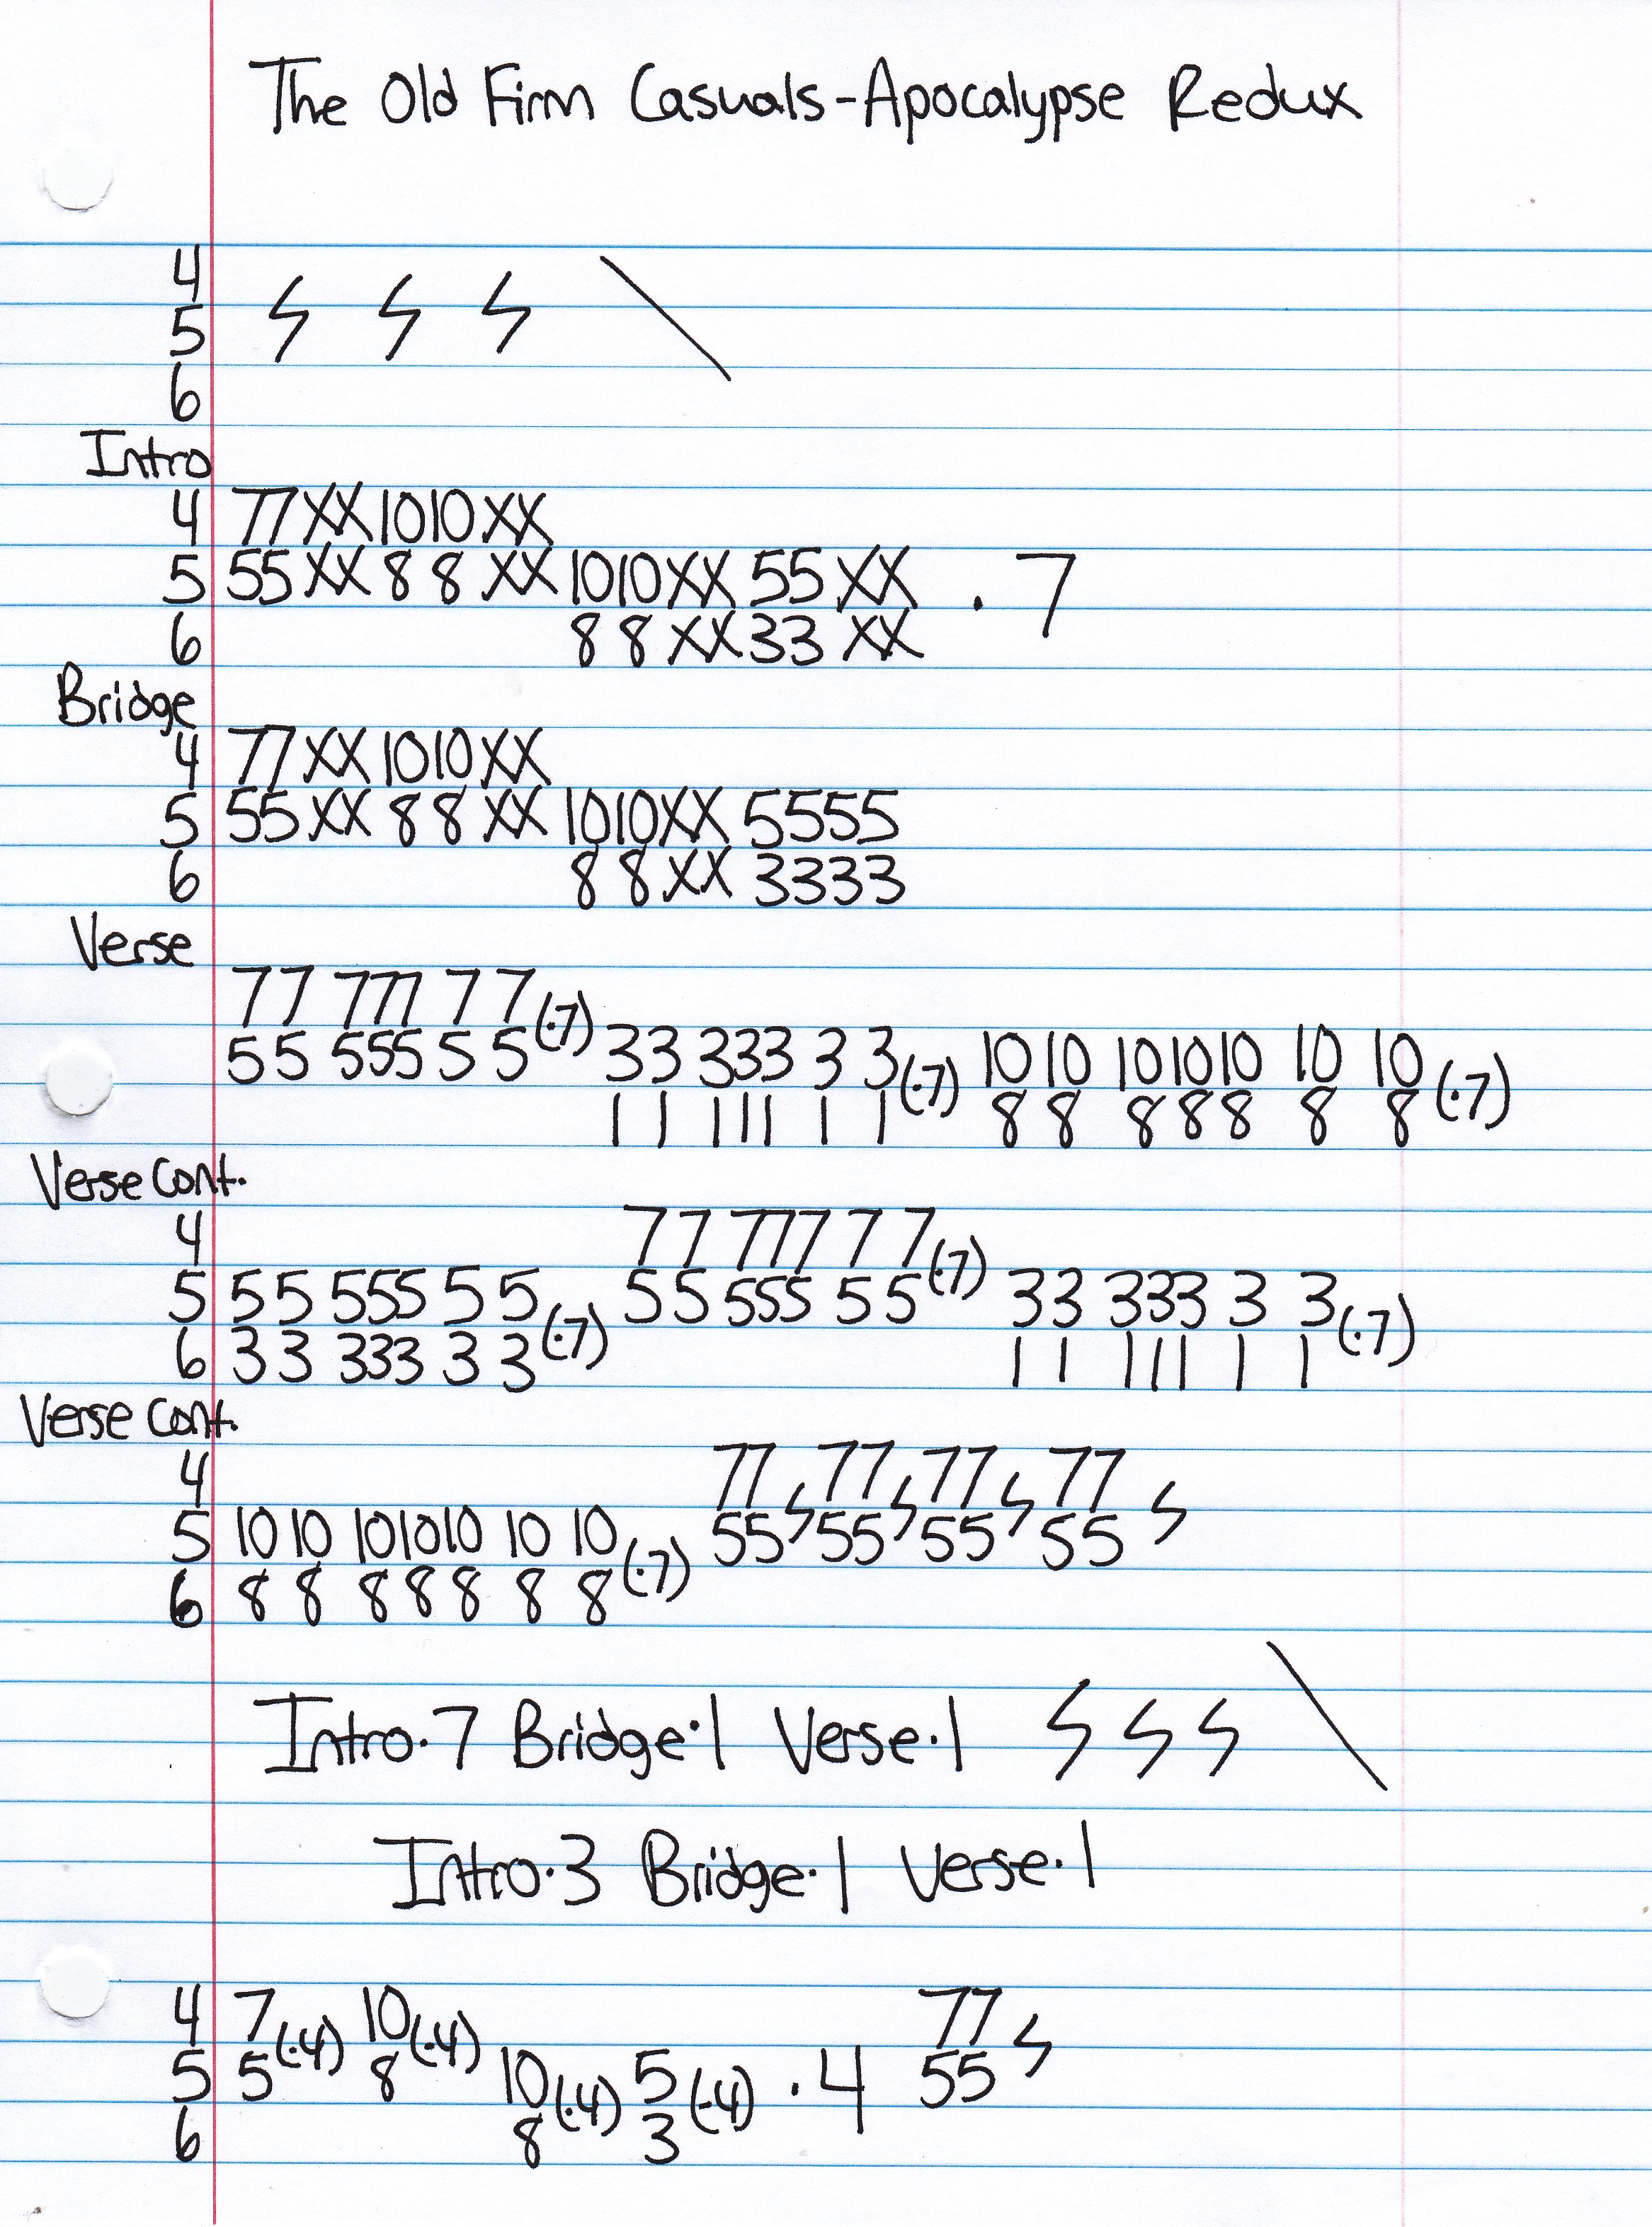 The Old Firm Casuals-Apocalypse Redux
4
5
6
Intro
4 77XX1010XX
5 55XX88XX1010XX55XX ·7
6 88XX33XX
Bridge
4 77XX1010XX
5 55XX88XX1010XX5555
6 88XX3333
Verse
77 777 7 7(·7)
55 555 5 5 33 333 3 3(·7) 10 10 101010 10 10(·7)
11 111 1 1 8 8 888 8 8
Verse Cont.
4 77 777 7 7(·7)
5 55 555 5 5 55 555 5 5 33 333 3 3(·7)
6 33 333 3 3(·7) 11 111 1 1
Verse Cont.
4 77 77 77 77
5 10 10 101010 10 10 55 55 55 55
6 8 8 888 8 8(·7)
Intro·7 Bridge·1 Verse·1
Intro·3 Bridge·1 Verse·1
4 7(·4) 10(·4) 77
5 5 8 10(·4) 5(·4) ·4 55
6 8 3